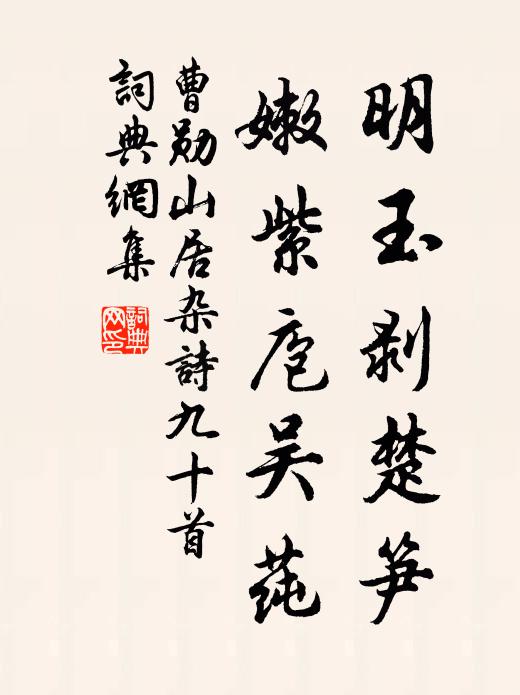 明玉剥楚笋
嫩紫庖吴莼
曹勋山居杂詩九十首
詞典網集
詞典网印